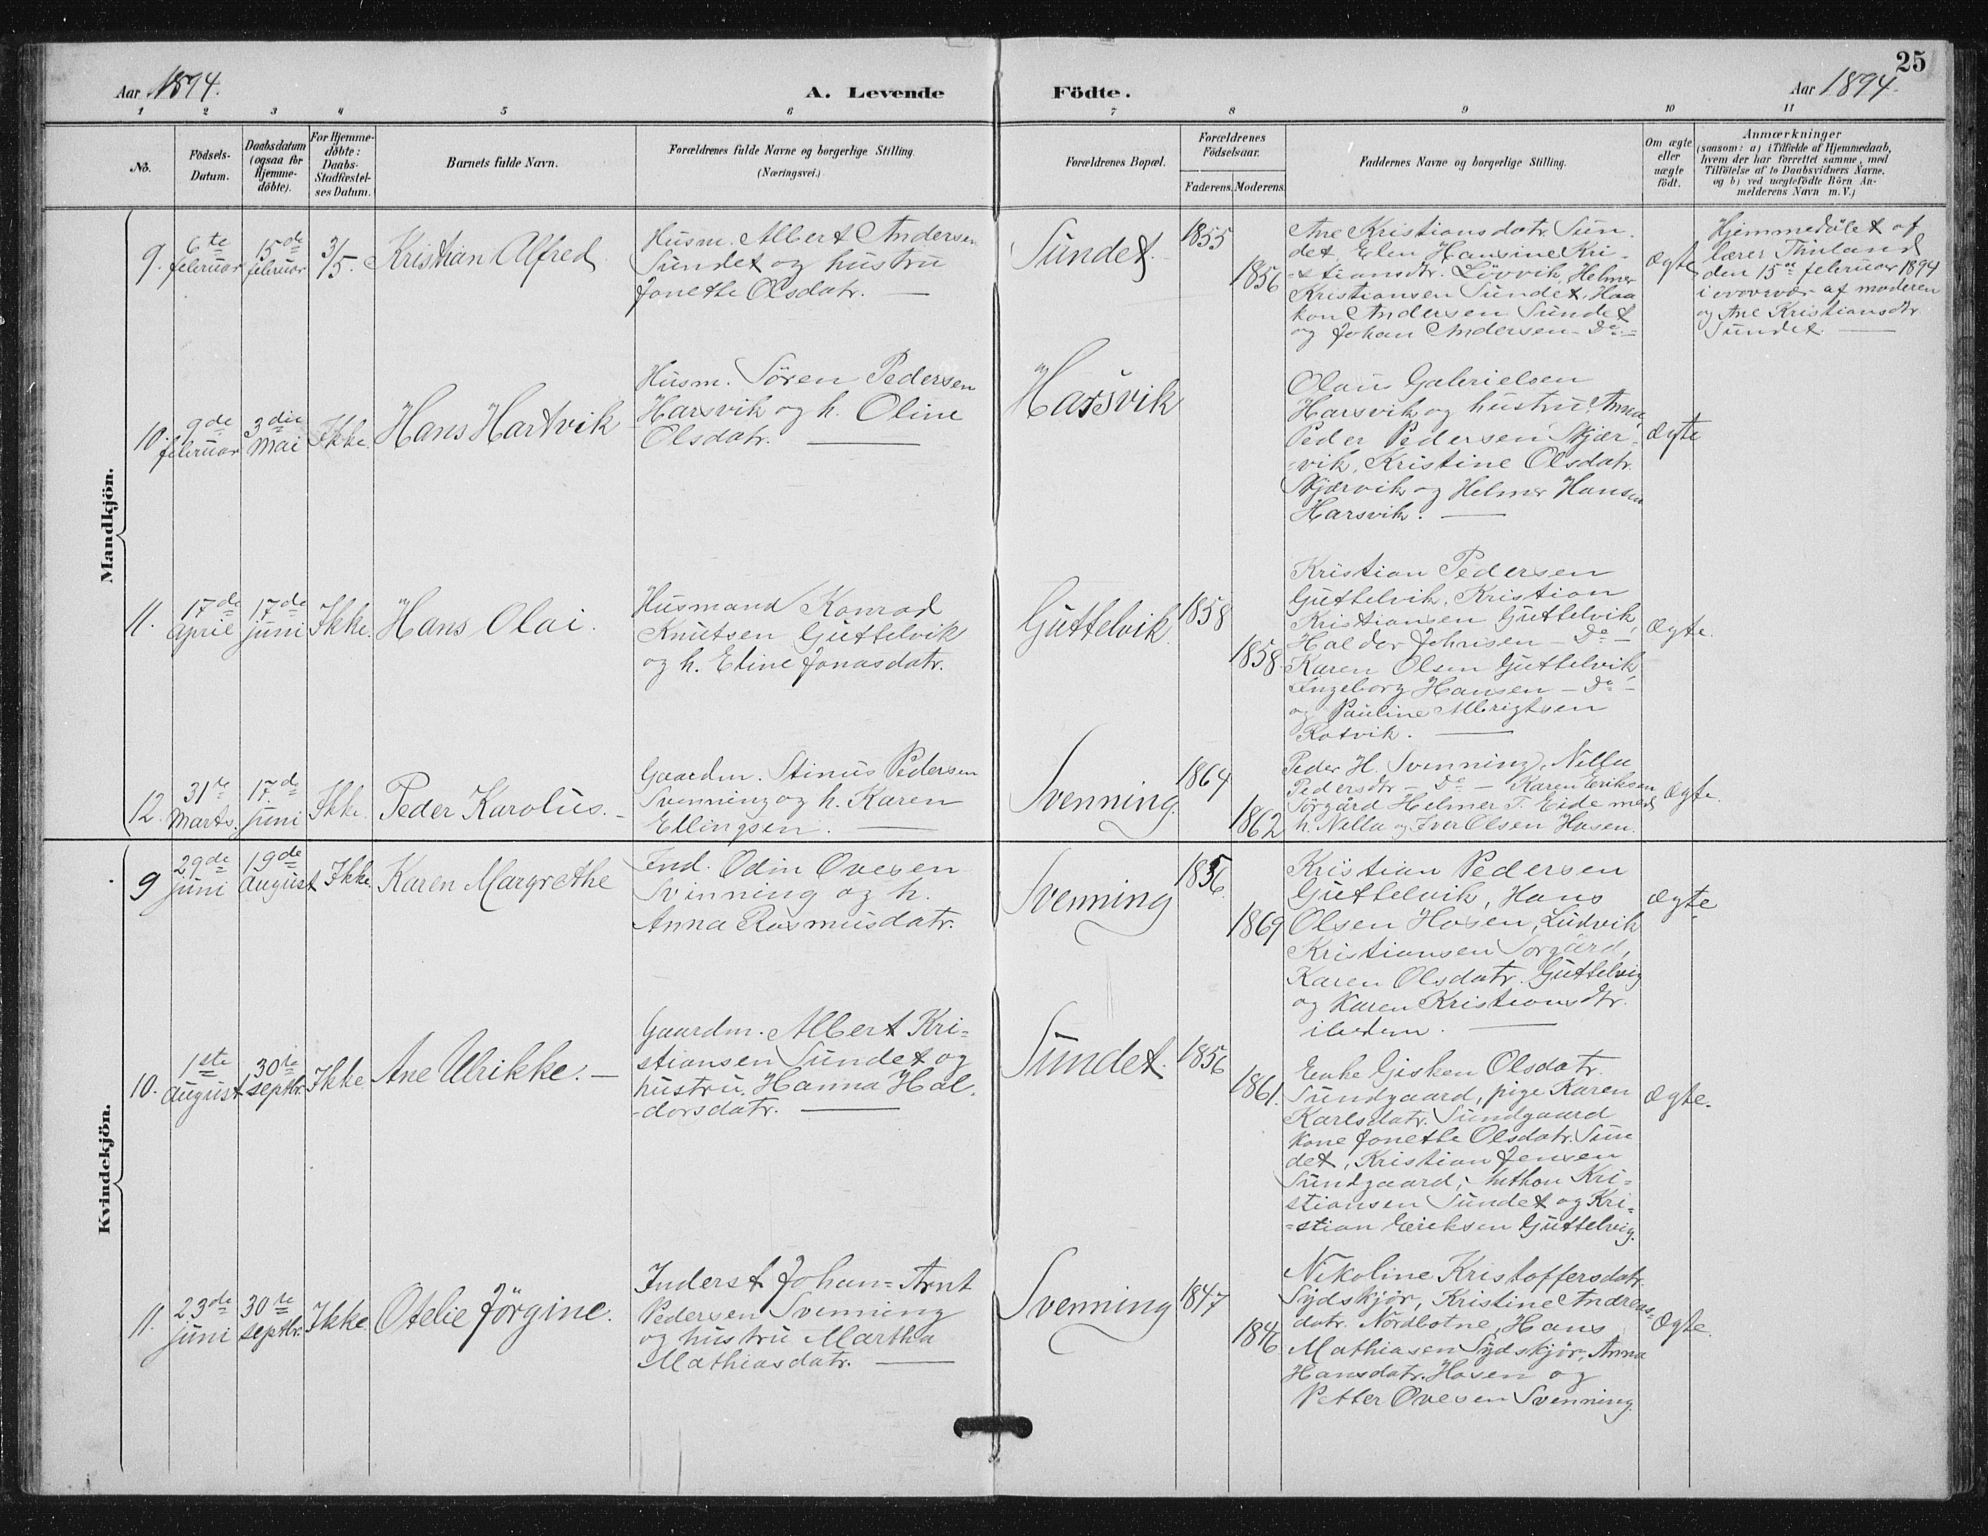 25
Aar 1894.
A. Levende
Födte.
Aar 1894.
1 2 3 4 5 6 7 8 9 10 11
No.
Födsels-
Datum.
Daabsdatum
(ogsaa for
Hjemme-
döbte).
For Hjemme-
döbte:
Daabs-
Stadfæstel-
ses Datum.
Barnets fulde Navn.
Forældrenes fulde Navne og borgerlige Stilling.
(Næringsvei.)
Forældrenes Bopæl.
Forældrenes
Födselsaar.
Faderens. Moderens.
Faddernes Navne og borgerlige Stilling.
Om ægte
eller
uægte
födt.
Anmærkninger
(saasom: a) i Tilfælde af Hjemmedaab,
hvem der har forrettet samme, med
Tilföielse af to Daabsvidners Navne,
og b) ved uægtefödte Börn An-
melderens Navn m. V.)
Mandkjön.
9.
6te
februar
15de
februar
3/5.
Kristian Alfred
Husm. Albert Andersen
Sundet og hustru
Jonette Olsdatr. —
Sundet.
1855
1856
Ane Kristiansdatr. Sun-
det, Elen Hansine Kri-
-stiansdtr. Lövvik, Helmer
Kristiansen Sundet, Haa
kon Andersen Sundet
og Johan Andersen — Do —
Ægte
Hjemmedöbt af
lærer
den 15de februar 1894
i overvær af moderen
og Ane Kristiansdtr
Sundet. —
10.
9de
februar
3die
Mai
Ikke.
Hans Hartvik
Husm. Sören Pedersen
Harsvik og h. Oline
Olsdatr. —
Harsvik
Olaus Gabrielsen
Harsvik og hustru Anna,
Peder Pedersen Skjær-
-vik, Kristine Olsdatr.
Skjærvik og Helmer Hansen
Harsvik. —
Ægte
11.
17de
April
17de
juni
Ikke.
Hans Olai.
Husmand Konrad
Knutsen Guttelvik
og h. Eline Jonasdatr.
Guttelvik.
1858
1858.
Kristian Pedersen
Guttelvik, Kristian
Kristiansen Guttelvik,
Haldor Johnsen — Do —
Karen Olsen Guttelvik,
Ingeborg Hansen — Do —
og Pauline Albrigtsen
Ratvik. —
Ægte.
12.
31te
Marts.
17de
juni
Ikke.
Peder Karolus. —
Gaardm. Stinus Pedersen
Svenning og h. Karen
Ellingsen. —
Svenning.
1864
1862
Peder H. Svenning, Nilla
Pedersdtr — Do — Karen Eriksen
Sörgård Helmer T. Eide med
h. Nilla og Iver Olsen Hasen.
Ægte.
Kvindekjön.
9
29de
juni
19de
August
Ikke.
Karen Margrethe
Ind. Odin Ovesen
Svinning og h.
Anna Rasmusdatr.
Svenning
1856.
1869
Kristian Pedersen
Guttelvik, Hans
Olsen Hosen, Ludvik
Kristiansen Sörgård,
Karen Olsdatr. Guttelvig
og Karen Kristiansdtr.
ibidem. —
Ægte.
10.
1ste
August
30te
septbr.
Ikke
Ane Ulrikke. —
Gaardm. Albert Kri-
stiansen Sundet og
hustru Hanna Hal-
-dorsdatr. —
Sundet.
1856
1861.
Enke Gisken Olsdatr.
Sundgaard, pige Karen
Karlsdatr. Sundgaard
Kone Jonette Olsdatr. Sun
det, Kristian Jensen
Sundgaard, Anthon Kri-
stiansen Sundet og Kri-
-stian Eriksen Guttelvig.
Ægte.
11.
23de
juni
30te
septbr.
Ikke.
Otelie Jörgine.
Inderst Johan-Arnt
Pedersen Svenning
og hustru Martha
Mathiasdatr. —
Svenning
1847
1846
Nikoline Kristoffersdatr.
Sydskjör, Kristine Andreas-
datr. Nordbotne, Hans
Mathiasen Sydskjör, Anna
Hansdatr. Hosen og
Petter Ovesen Svenning.
Ægte.